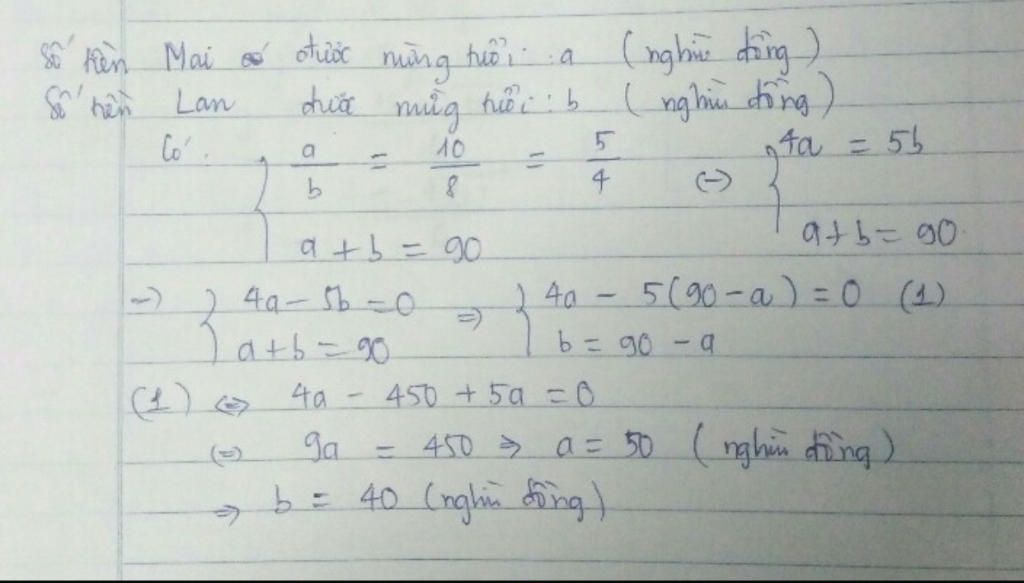 Số tiền Mai có được mừng tuổi: a (nghìn đồng)
Số tiền Lan được mừng tuổi: b (nghìn đồng)
Có: { a/b = 10/8 = 5/4 (=) { 4a = 5b
a + b = 90 a + b = 90
=) { 4a - 5b = 0 => { 4a - 5(90 - a) = 0 (1)
a + b = 90 b = 90 - a
(1) <=> 4a - 450 + 5a = 0
(=) 9a = 450 => a = 50 (nghìn đồng)
=> b = 40 (nghìn đồng)